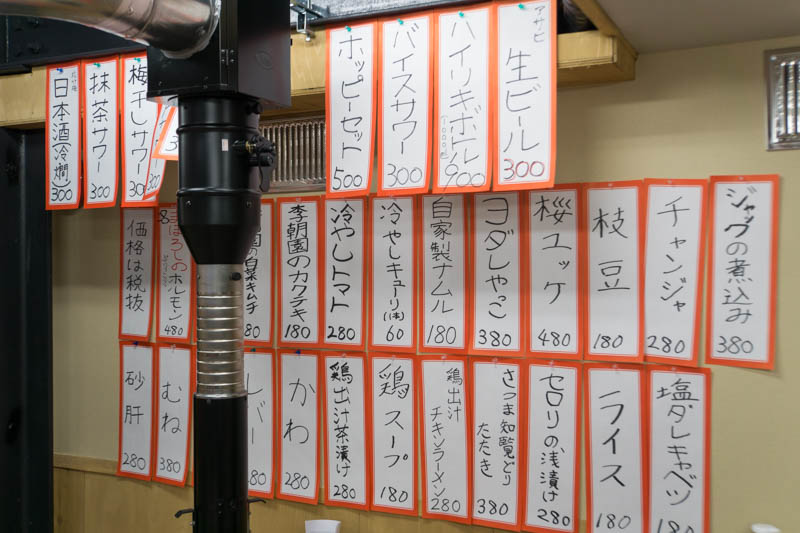 アサヒ
生ビール
300
ハイリキボトル
900
バイスサワー
300
ホッピーセット
500
梅干しサワー
300
抹茶サワー
300
日本酒(冷燗)
300
ジャヴの煮込み
380
チャンジャ
280
枝豆
180
桜ユッケ
480
ヨダしゃっこ
380
自家製ナムル
180
冷やしキューリ
(本)
60
冷やしトマト
280
李朝園のカクテキ
180
の白菜キムチ
80
まぼろしのホルモン
480
価格は税抜
塩ダレキャベツ
180
ライス
180
セロリの浅漬け
280
さつま知覧どり
たたき
380
鶏出汁
チキンラーメン
280
鶏スープ
180
鶏出汁茶漬け
280
かわ
280
レバー
80
むね
380
砂肝
280